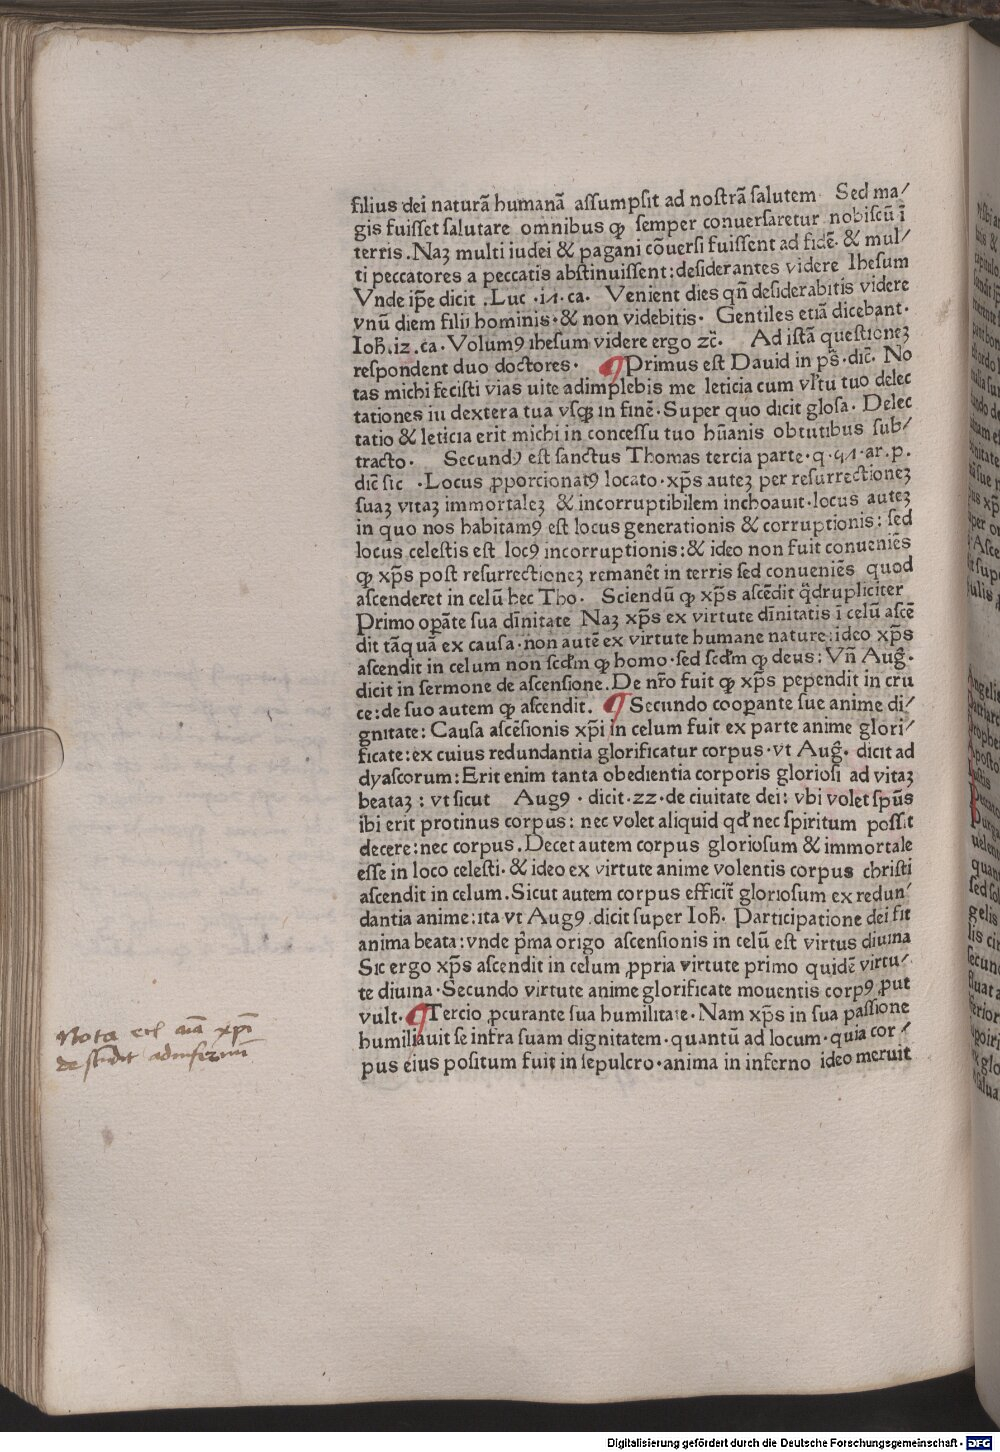 filius dei naturā humanā assumpsit ad nostrā salutem Sed ma/
gis fuisset salutare omnibus ꝙ semper conuersaretur nobiscū ī
terris. Naꝫ multi iudei & pagani cōuersi fuissent ad fidē. & mul/
ti peccatores a peccatis abstinuissent: desiderantes videre Ihesum
Vnde ip̄e dicit .Luc .i7. ca. Venient dies qn̄ desiderabitis videre
vnū diem filii hominis. & non videbitis. Gentiles etiā dicebant.
Ioħ.iz.ca. Volumꝰ ihesum videre ergo ꝛc̄. Ad istā questioneꝫ
respondent duo doctores. ¶ Primus est Dauid in ps̄. dic̄. No
tas michi fecisti vias uite adimplebis me leticia cum vl̄tu tuo delec
tationes iu dextera tua vsqꝫ in finē. Super quo dicit glosa. Delec
tatio & leticia erit michi in concessu tuo hūanis obtutibus sub/
tracto. Secundꝰ est sanctus Thomas tercia parte. q. 57. ar. p.
dic̄ sic .Locus ꝓporcionatꝰ locato. xp̄s auteꝫ per resurrectioneꝫ
suaꝫ vitaꝫ immortaleꝫ & incorruptibilem inchoauit. locus auteꝫ
in quo nos habitamꝰ est locus generationis & corruptionis: sed
locus celestis est locꝰ incorruptionis: & ideo non fuit conueniēs
ꝙ xp̄s post resurrectioneꝫ remanēt in terris sed conueniēs quod
ascenderet in celū hec Tho. Sciendū ꝙ xp̄s ascēdit q̄drupliciter
Primo opāte sua dīnitate Naꝫ xp̄s ex virtute dīnitatis ī celū ascē
dit tāquā ex causa. non autē ex virtute humane nature: ideo xp̄s
ascendit in celum non scd̄m ꝙ homo. sed scd̄m ꝙ deus: Vn̄ Auḡ.
dicit in sermone de ascensione. De nr̄o fuit ꝙ xp̄s pependit in cru
ce: de suo autem ꝙ ascendit. ¶ Secundo coopante sue anime di/
gnitate: Causa ascēsionis xp̄i in celum fuit ex parte anime glori/
ficate: ex cuius redundantia glorificatur corpus. vt Auḡ. dicit ad
dyascorum: Erit enim tanta obedientia corporis gloriosi ad vitaꝫ
beataꝫ : vt sicut Augꝰ . dicit. zz. de ciuitate dei: vbi volet spūs
ibi erit protinus corpus: nec volet aliquid qd' nec spiritum possit
decere: nec corpus. Decet autem corpus gloriosum & immortale
esse in loco celesti. & ideo ex virtute anime volentis corpus christi
ascendit in celum. Sicut autem corpus efficit̄ gloriosum ex redun/
dantia anime: ita vt Augꝰ. dicit super Ioħ. Participatione dei fit
anima beata: vnde p̄ma origo ascensionis in celū est virtus diuina
Sic ergo xp̄s ascendit in celum ꝓpria virtute primo quidē virtu/
te diuina. Secundo virtute anime glorificate mouentis corpꝰ ꝓut
vult. ¶ Tercio ꝓcurante sua humilitate. Nam xp̄s in sua passione
humiliauit se infra suam dignitatem. quantū ad locum. quia cor/
pus eius positum fuit in sepulcro. anima in inferno ideo meruit
Nota ai̅a xp̄i
descendit ad infernum